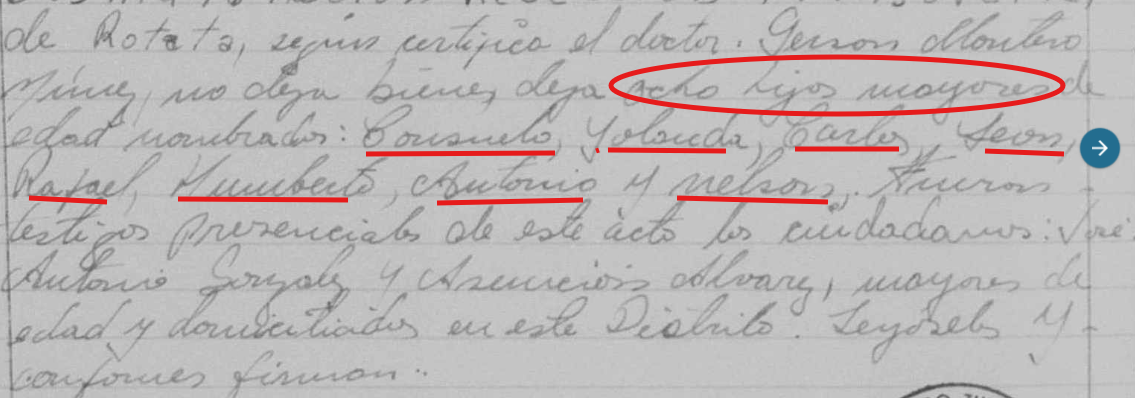 de Rotata, según certifica el doctor. Gerson Montero
no deja bienes, deja ocho hijos mayores de
edad nombrados: Consuelo, Yolanda, Carlos, Leon,
Rafael, Humberto, Antonio y Nelson. Fueron -
testigos presenciales de este acto los ciudadanos: José
Antonio Gonzalez y Asuncion Alvarez, mayores de
edad y domiciliados en este Distrito. Leyóseles y -
conformes firman..